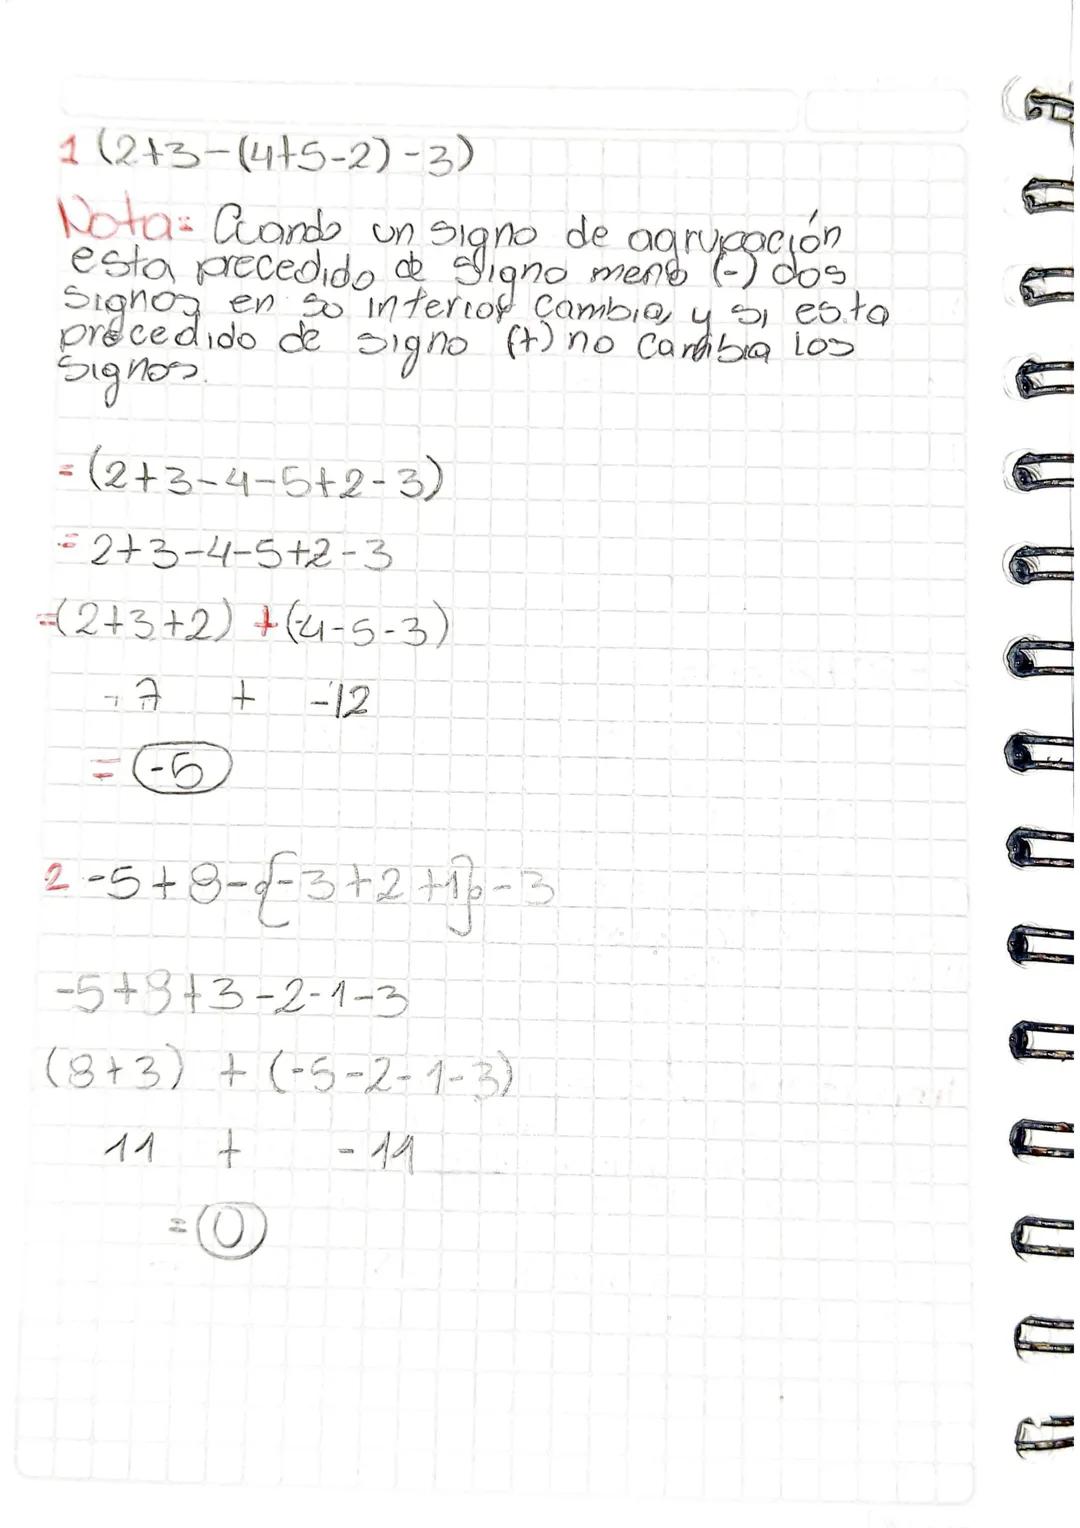 1 (2+3-(4+5-2)-3)
Nota: Cuando un signo de agrupación
esta precedido de signo meno (-) dos
signos en so interior cambia, y si esta
precedido de signo (+) no cambia los
signos.
= (2+3-4-5+2-3)
= 2+3-4-5+2-3
=(2+3+2) +(-4-5-3)
7 + -12
= -5
2 -5+8-{-3+2+1}-3
-5+8+3-2-1-3
(8+3) + (-5-2-1-3)
11 + -11
= 0